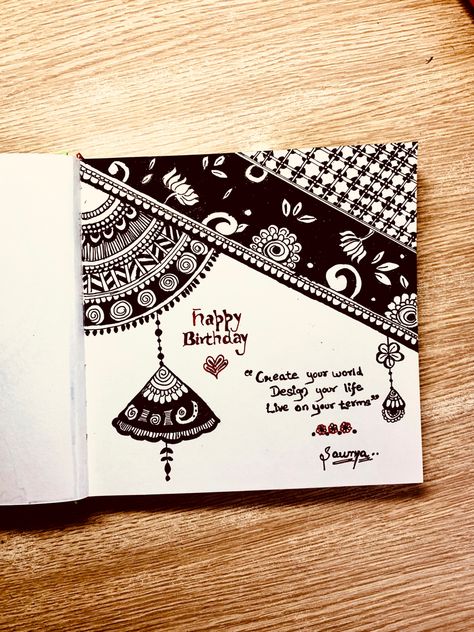 Happy
Birthday
"Create your world
Design your life
Live on your terms"
Saumya..